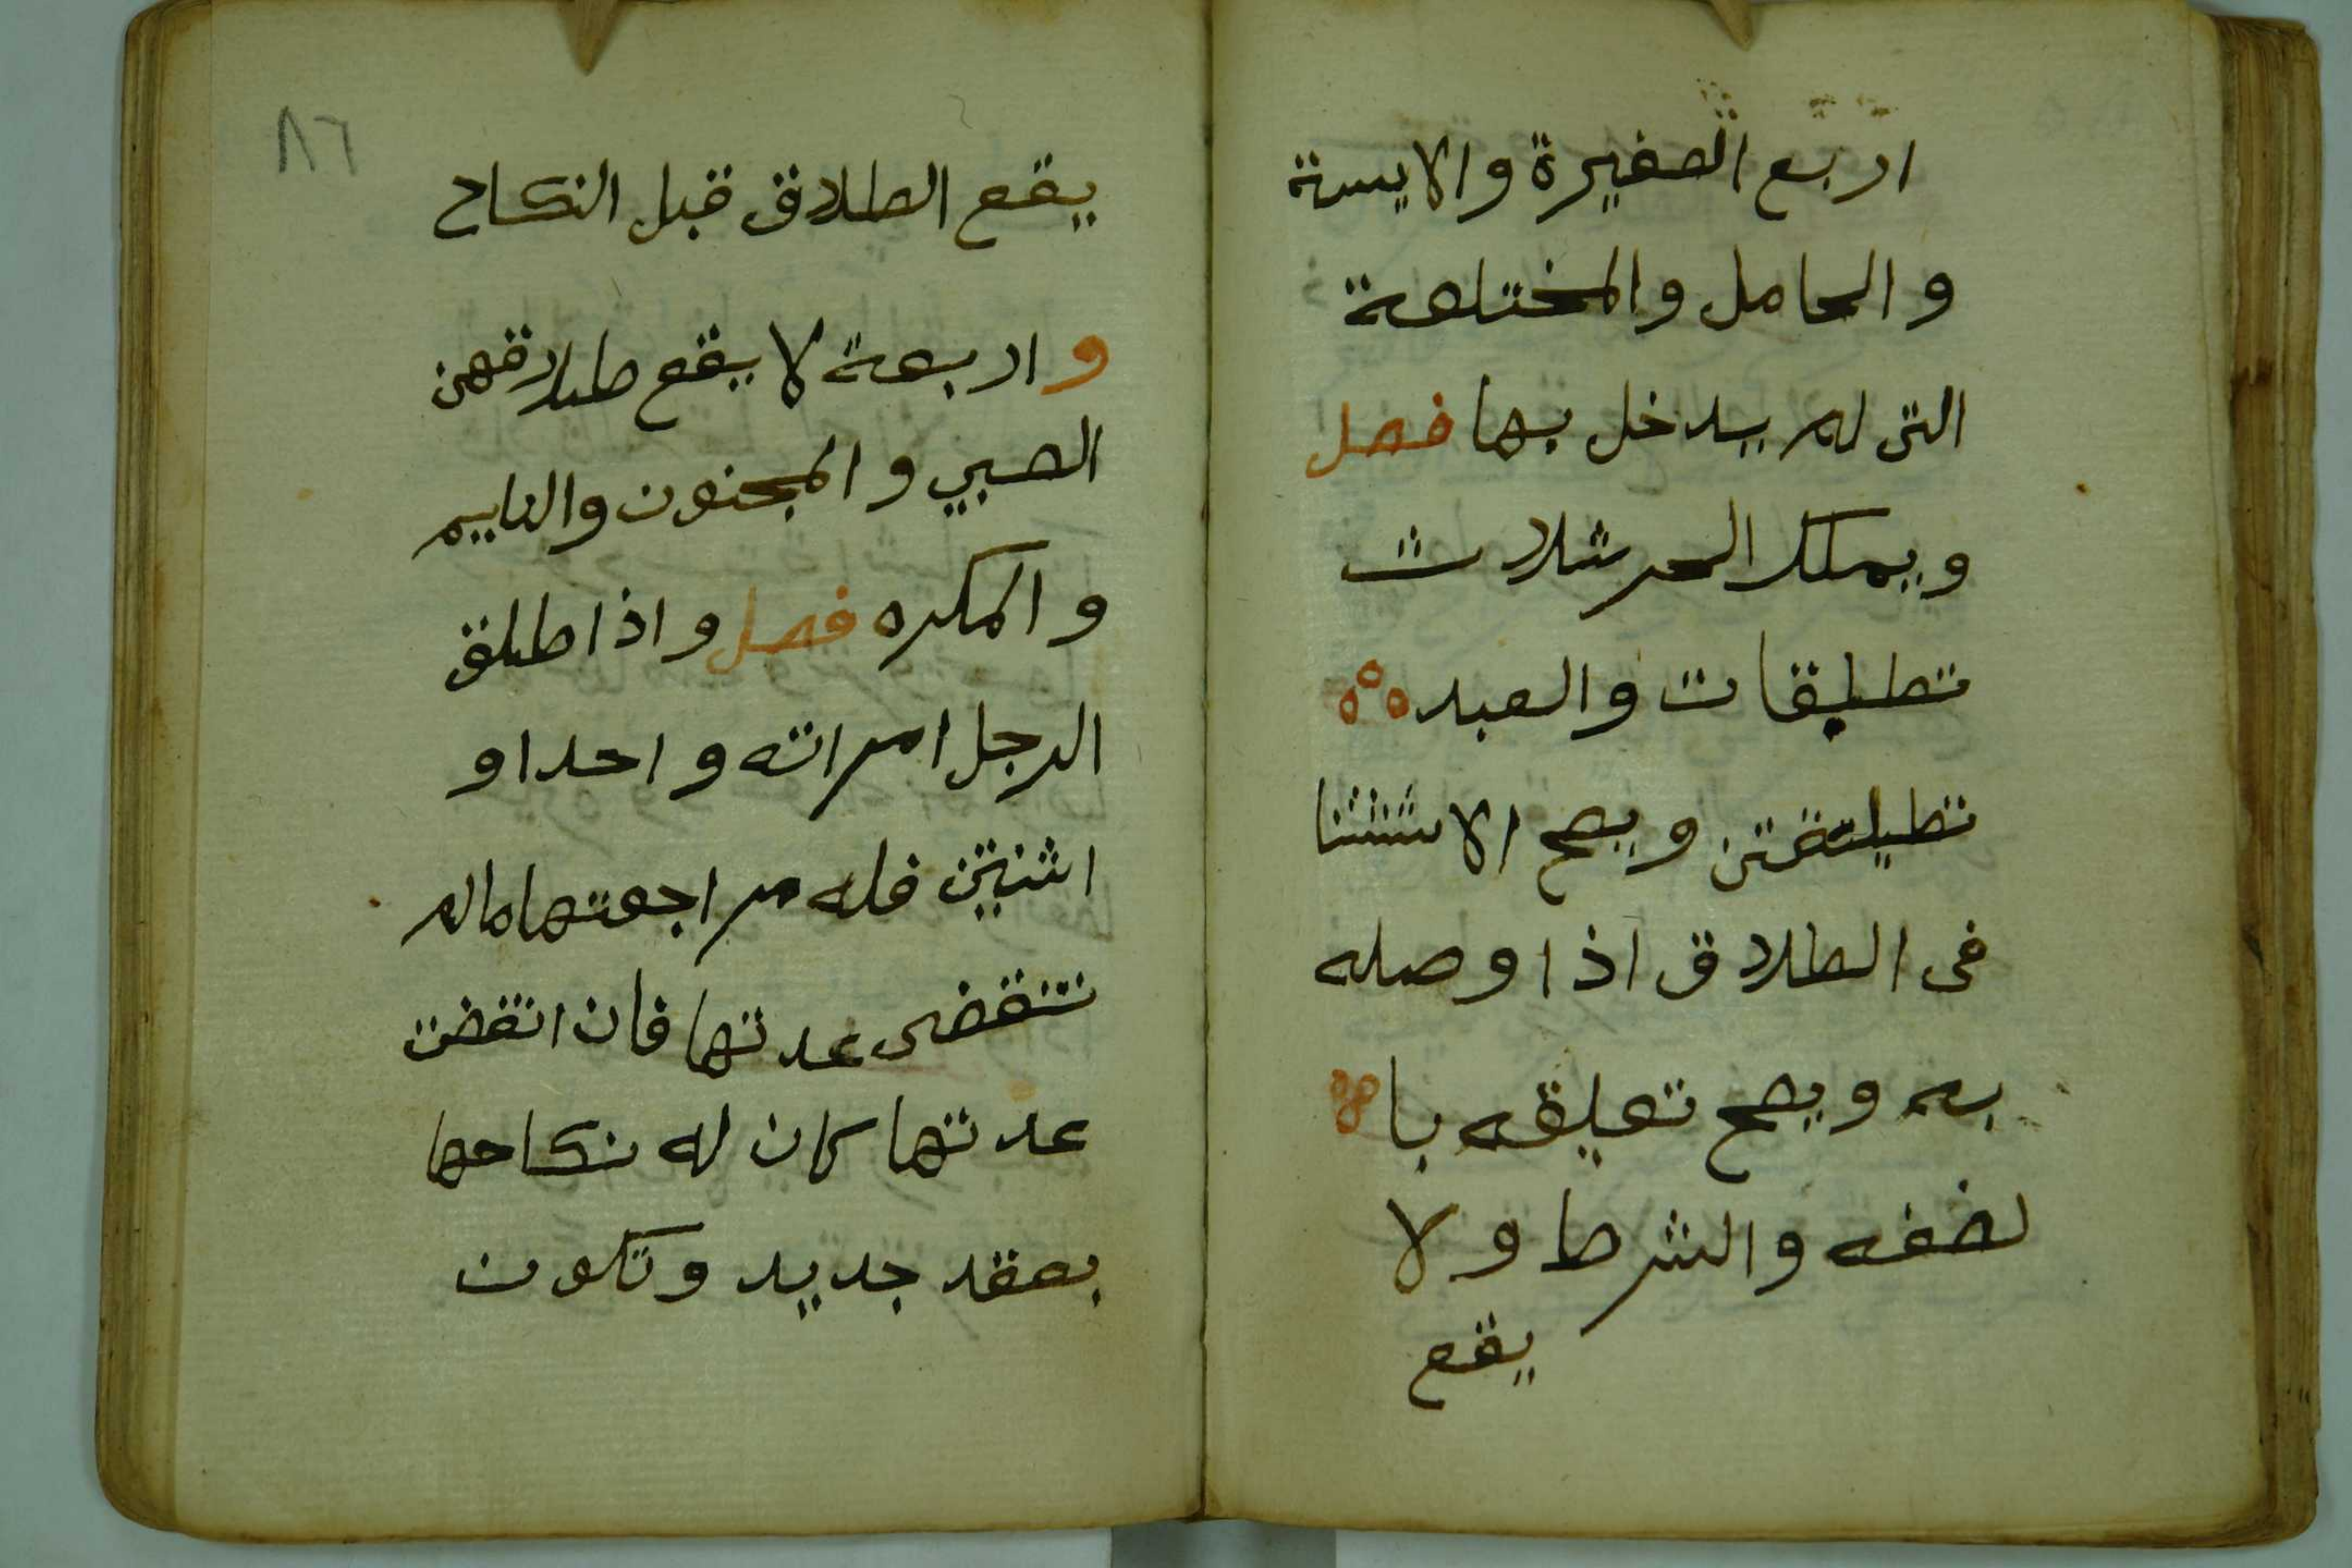 اربع الصغيرة والايسة
والحامل والمختلعة
التى لم يدخل بها فصل
ويملك الحر ثلاث
تطليقات والعبد
تطليقتين ويصح الاستثنا
فى الطلاق اذا وصله
به ويصح تعليقه با
لصفه والشرط ولا
يقع
٨٦
يقع الطلاق قبل النكاح
واربعة لا يقع طلاقهن
الصبي والمجنون والنايم
والمكره فصل واذا طلق
الرجل امراته واحدا و
اثنيتن فله مراجعتها مالم
تنقضى عدتها فان انقضت
عدتها كان له نكاحها
بعقد جديد وتكون